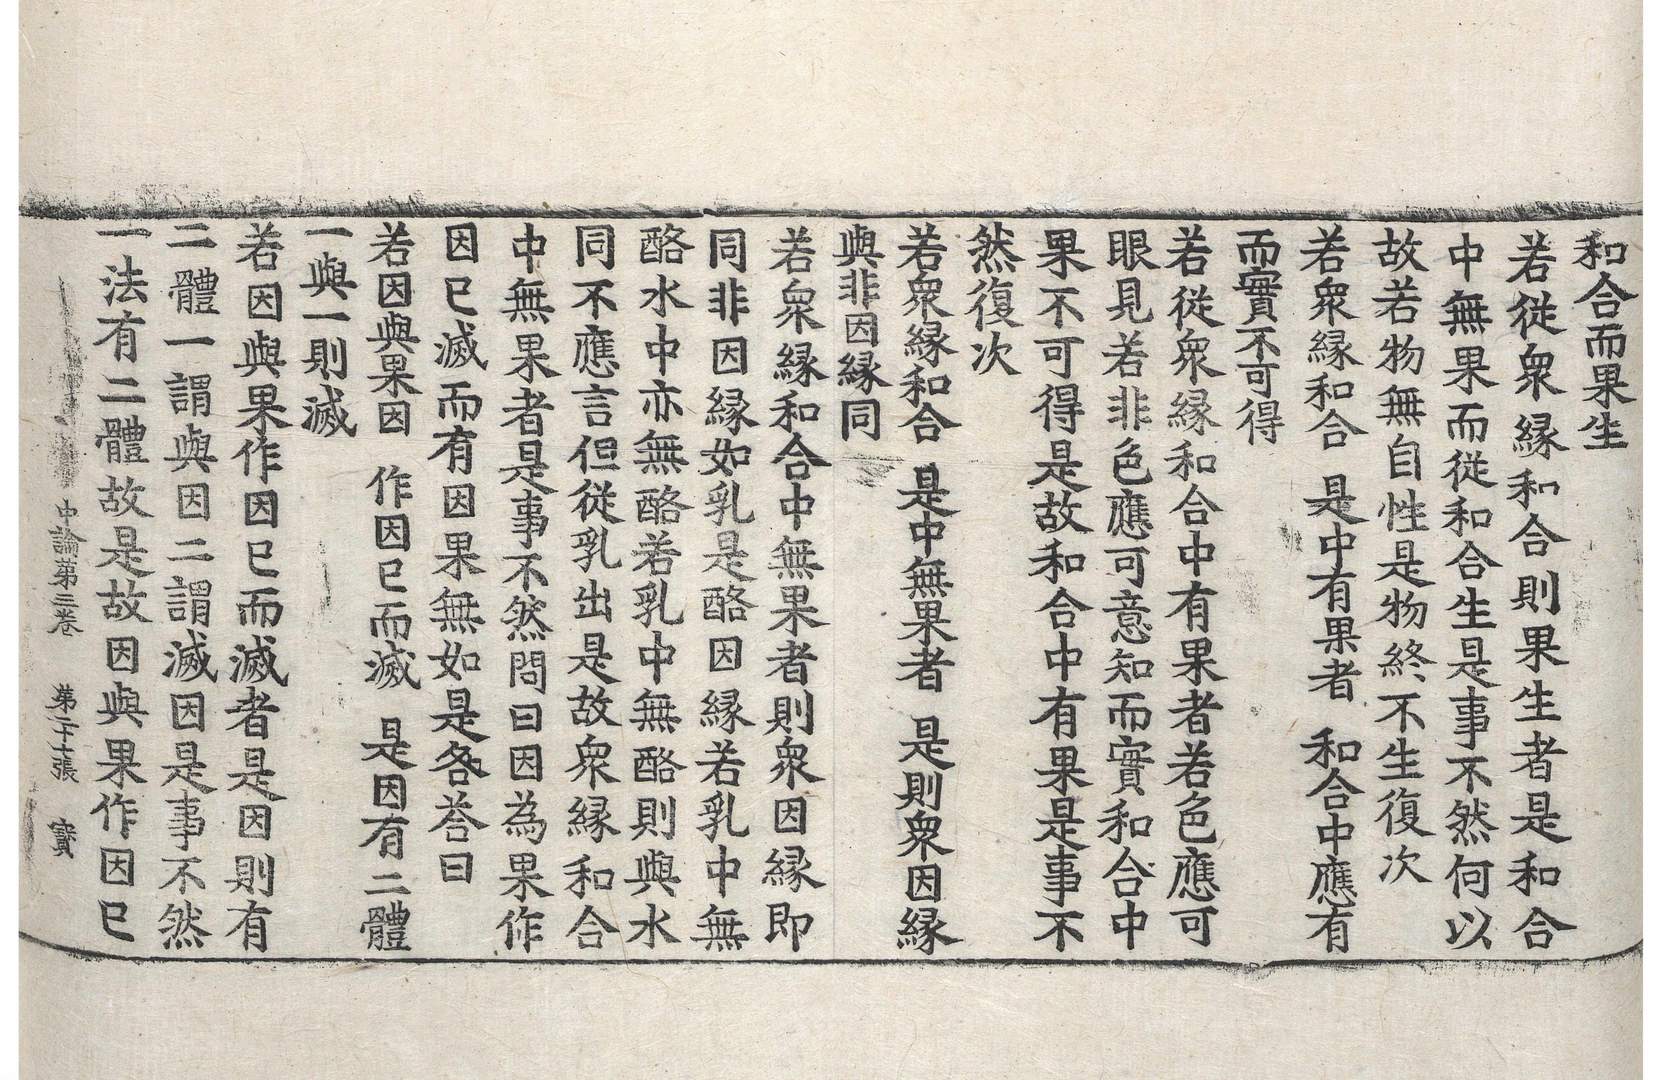 和合而果生
若從衆緣和合則果生者是和合
中無果而從和合生是事不然何以
故若物無自性是物終不生復次
若衆緣和合 是中有果者 和合中應有
而實不可得
若從衆緣和合中有果者若色應可
眼見若非色應可意知而實和合中
果不可得是故和合中有果是事不
然復次
若衆緣和合 是中無果者 是則衆因緣
與非因緣同
若衆緣和合中無果者則衆因緣即
同非因緣如乳是酪因緣若乳中無
酪水中亦無酪若乳中無酪則與水
同不應言但從乳出是故衆緣和合
中無果者是事不然問曰因為果作
因已滅而有因果無如是咎荅曰
若因與果因 作因已而滅 是因有二體
一與一則滅
若因與果作因已而滅者是因則有
二體一謂與因二謂滅因是事不然
一法有二體故是故因與果作因已
中論第三卷 第二十張 寶